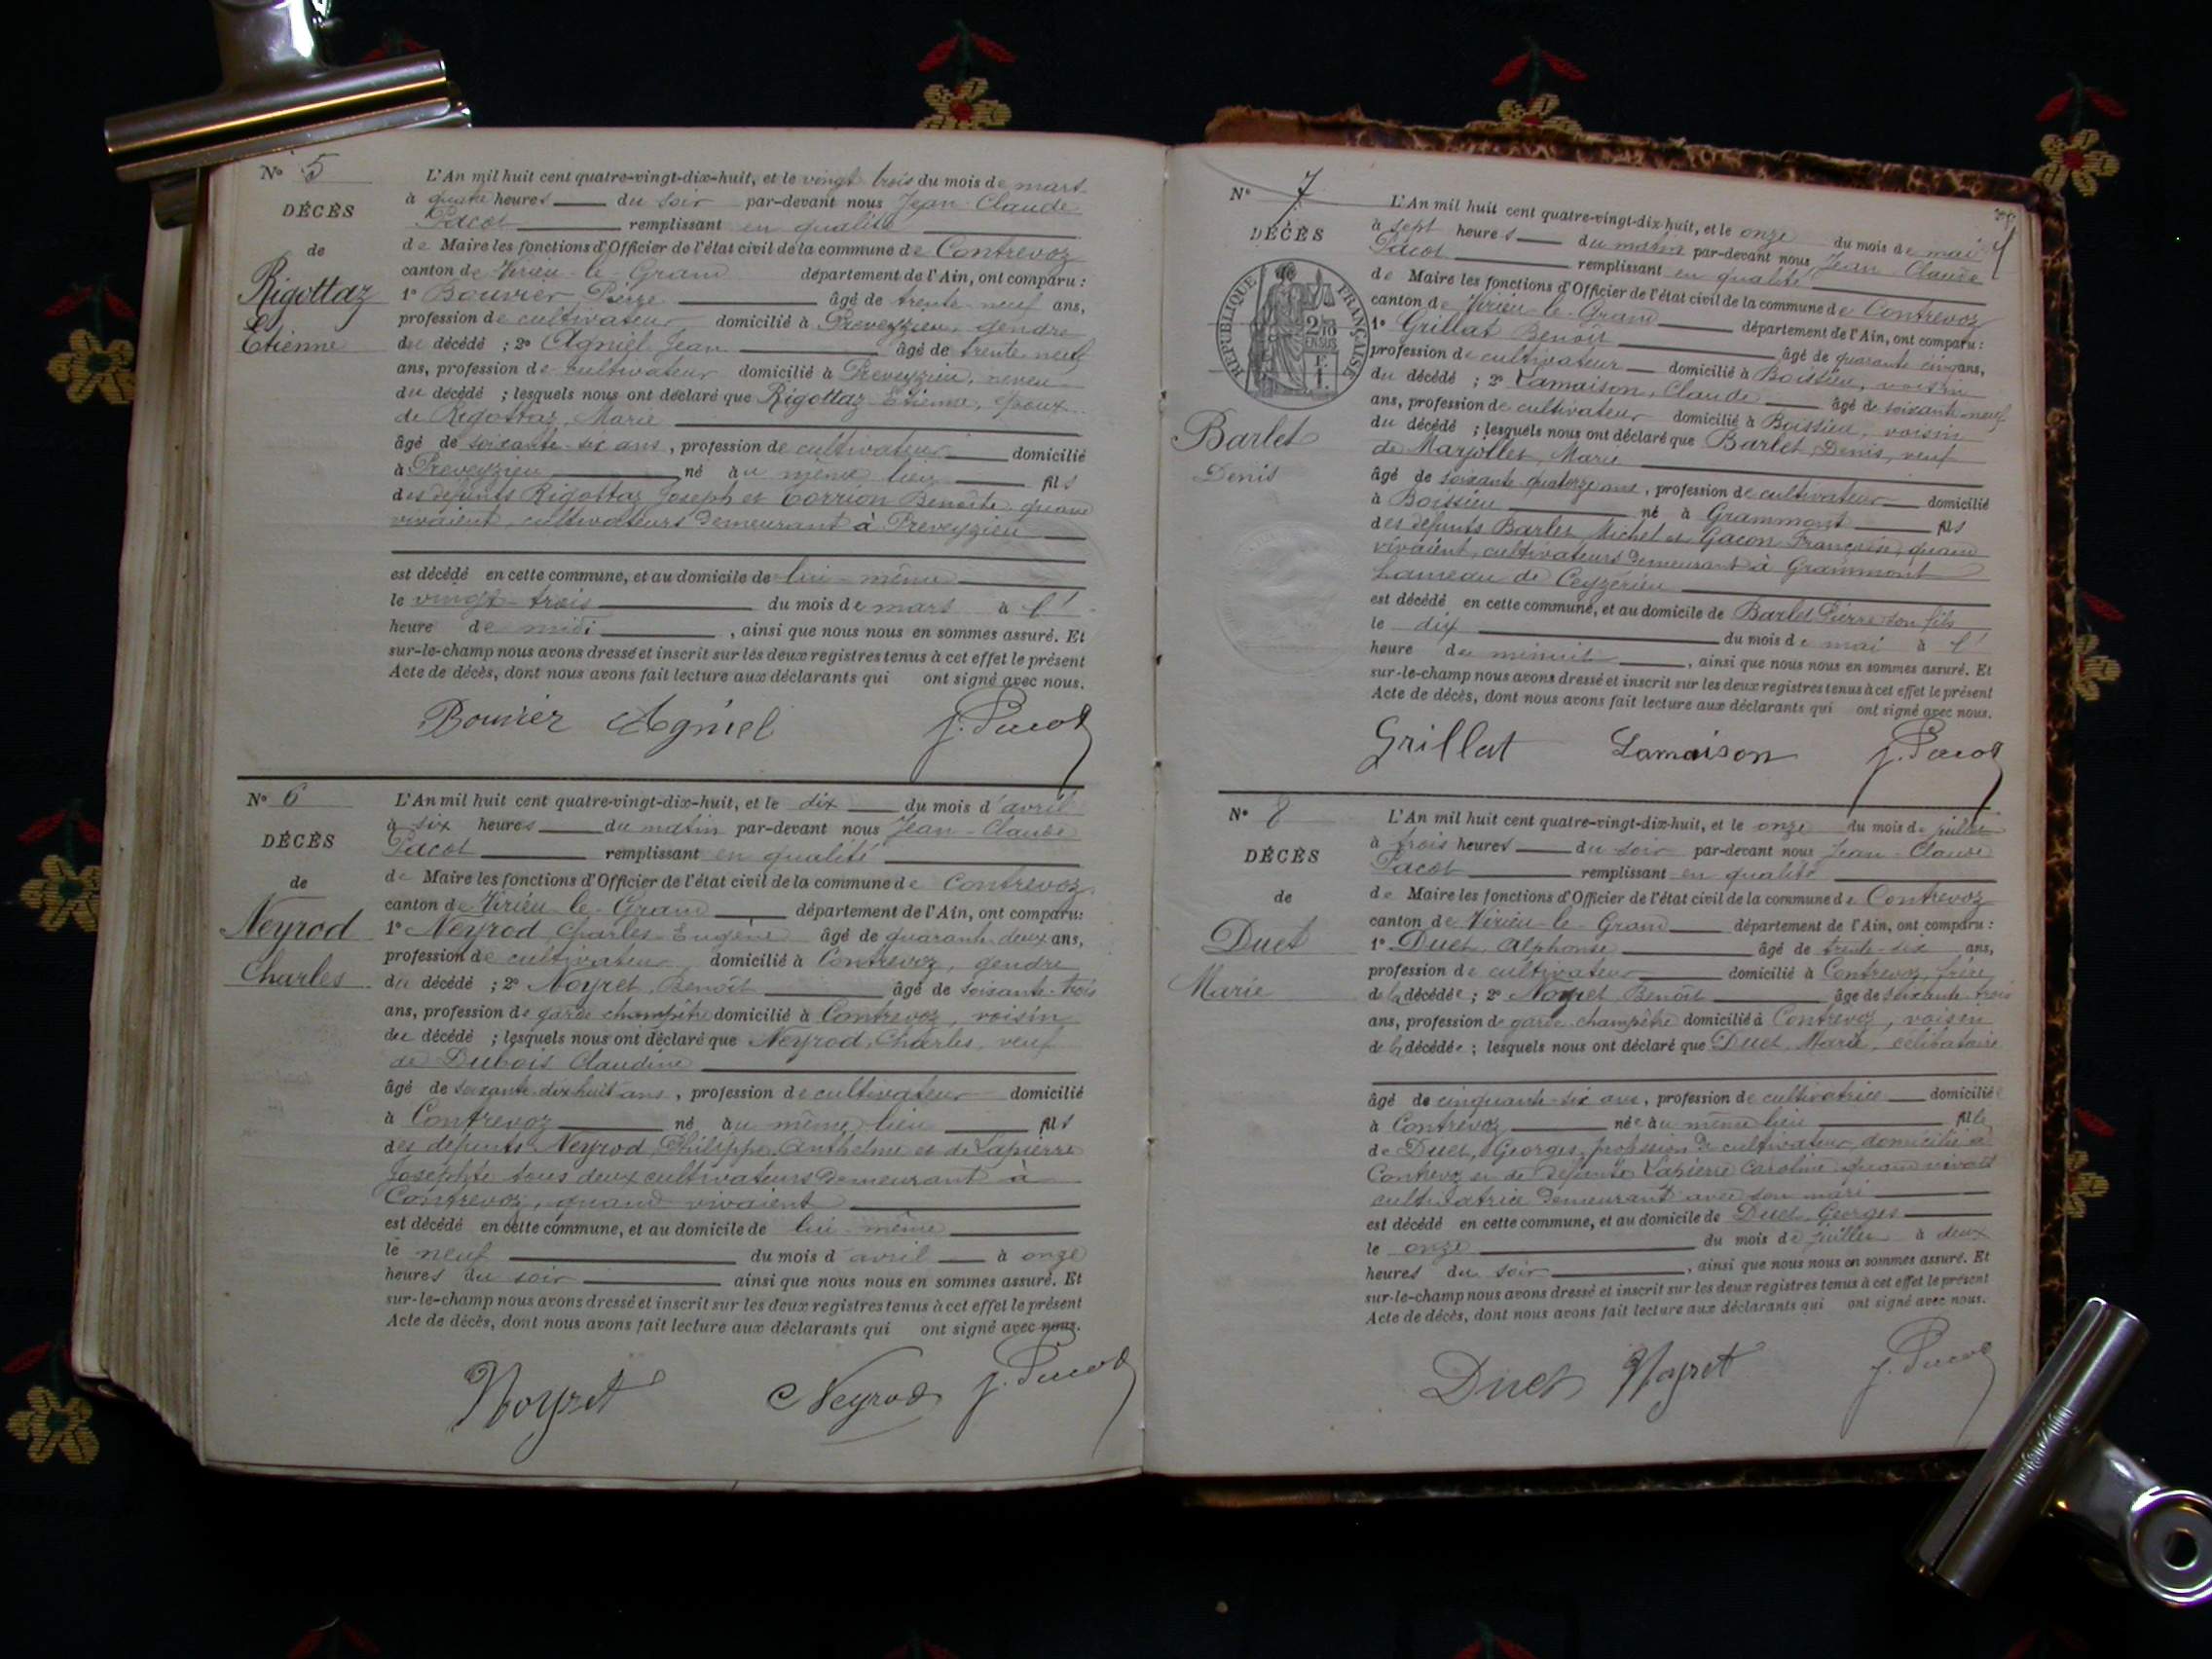 N° 5
DÉCÈS
de
Rigottaz
Etienne
L'An mil huit cent quatre-vingt-dix-huit, et le vingt trois du mois de mars
à quatre heures du soir par-devant nous Jean-Claude
Pacot remplissant en qualité
de Maire les fonctions d'Officier de l'état civil de la commune de Contrevoz
canton de Virieu-le-Grand département de l'Ain, ont comparu :
1° Bouvier, Pierre âgé de trente-neuf ans,
profession de cultivateur domicilié à Preveyzieu, gendre
du décédé ; 2° Agniel Jean âgé de trente neuf
ans, profession de cultivateur domicilié à Preveyzieu, neveu
du décédé ; lesquels nous ont déclaré que Rigottaz Etienne, époux
de Rigottaz, Marie
âgé de soixante-six ans, profession de cultivateur domicilié
à Preveyzieu né au même lieu fils
des défunts Rigottaz Joseph et Corrion Benoîte quand
vivaient, cultivateurs demeurant à Preveyzieu
est décédé en cette commune, et au domicile de lui-même
le vingt-trois du mois de mars à l'
heure de midi, ainsi que nous nous en sommes assuré. Et
sur-le-champ nous avons dressé et inscrit sur les deux registres tenus à cet effet le présent
Acte de décès, dont nous avons fait lecture aux déclarants qui ont signé avec nous.
Bouvier Agniel J. Pacot
N° 6
DÉCÈS
de
Neyrod
Charles
L'An mil huit cent quatre-vingt-dix-huit, et le dix du mois d'avril
à six heures du matin par-devant nous Jean-Claude
Pacot remplissant en qualité
de Maire les fonctions d'Officier de l'état civil de la commune de Contrevoz
canton de Virieu-le-Grand département de l'Ain, ont comparu:
1° Neyrod, Charles Eugène âgé de quarante-deux ans,
profession de cultivateur domicilié à Contrevoz, gendre
du décédé ; 2° Noyret, Benoît âgé de soixante-trois
ans, profession de garde champêtre domicilié à Contrevoz, voisin
du décédé ; lesquels nous ont déclaré que Neyrod, Charles, veuf
de Dubois Claudine
âgé de soixante-dix huit ans, profession de cultivateur domicilié
à Contrevoz né au même lieu fils
des défunts Neyrod, Philippe Anthelme et de Lapierre
Josephte tous deux cultivateurs demeurant à
Contrevoz, quand vivaient
est décédé en cette commune, et au domicile de lui-même
le neuf du mois d'avril à onze
heures du soir ainsi que nous nous en sommes assuré. Et
sur-le-champ nous avons dressé et inscrit sur les deux registres tenus à cet effet le présent
Acte de décès, dont nous avons fait lecture aux déclarants qui ont signé avec nous.
Noyret C Neyrod J. Pacot
N° 7
DÉCÈS
RÉPUBLIQUE FRANÇAISE
Barlet
Denis
L'An mil huit cent quatre-vingt-dix-huit, et le onze du mois de mai
à sept heures du matin par-devant nous Jean-Claude
Pacot remplissant en qualité
de Maire les fonctions d'Officier de l'état civil de la commune de Contrevoz
canton de Virieu-le-Grand département de l'Ain, ont comparu :
1° Grillat Benoît âgé de quarante cinq ans,
profession de cultivateur domicilié à Boissieu, voisin
du décédé ; 2° Lamaison, Claude âgé de soixante-neuf
ans, profession de cultivateur domicilié à Boissieu, voisin
du décédé ; lesquels nous ont déclaré que Barlet, Denis, veuf
de Marjollet, Marie
âgé de soixante quatorze ans, profession de cultivateur domicilié
à Boissieu né à Grammont fils
des défunts Barlet Michel et Gacon Françoise, quand
vivaient, cultivateurs demeurant à Grammont
hameau de Ceyzerieu
est décédé en cette commune, et au domicile de Barlet Pierre son fils
le dix du mois de mai à l'
heure de minuit, ainsi que nous nous en sommes assuré. Et
sur-le-champ nous avons dressé et inscrit sur les deux registres tenus à cet effet le présent
Acte de décès, dont nous avons fait lecture aux déclarants qui ont signé avec nous.
Grillat Lamaison J. Pacot
N° 8
DÉCÈS
de
Duet
Marie
L'An mil huit cent quatre-vingt-dix-huit, et le onze du mois de juillet
à trois heures du soir par-devant nous Jean-Claude
Pacot remplissant en qualité
de Maire les fonctions d'Officier de l'état civil de la commune de Contrevoz
canton de Virieu-le-Grand département de l'Ain, ont comparu :
1° Duet, Alphonse âgé de trente-six ans,
profession de cultivateur domicilié à Contrevoz, frère
de la décédée ; 2° Noyret Benoît âgé de soixante-trois
ans, profession de garde champêtre domicilié à Contrevoz, voisin
de la décédée ; lesquels nous ont déclaré que Duet, Marie, célibataire
âgé de cinquante-six ans, profession de cultivatrice domiciliée
à Contrevoz née au même lieu fille
de Duet, Georges, profession de cultivateur, domicilié à
Contrevoz et de défunte Lapierre Caroline quand vivait
cultivatrice demeurant avec son mari
est décédé en cette commune, et au domicile de Duet, Georges
le onze du mois de juillet à deux
heures du soir, ainsi que nous nous en sommes assuré. Et
sur-le-champ nous avons dressé et inscrit sur les deux registres tenus à cet effet le présent
Acte de décès, dont nous avons fait lecture aux déclarants qui ont signé avec nous.
Duet Noyret J. Pacot